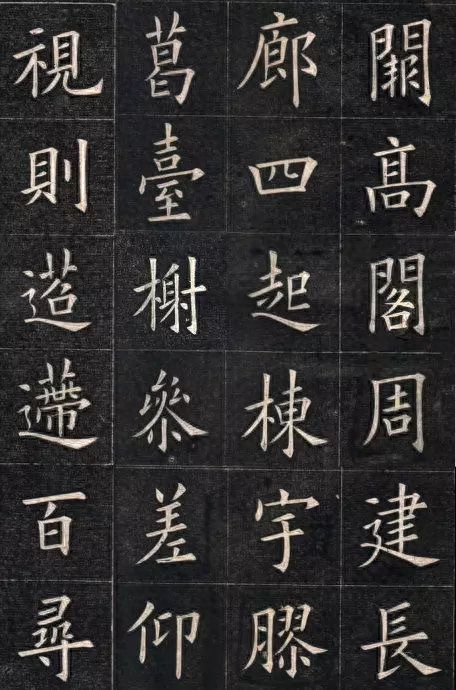 闕高閣周建長
廊四起棟宇膠
葛臺榭參差仰
視則迢遰百尋